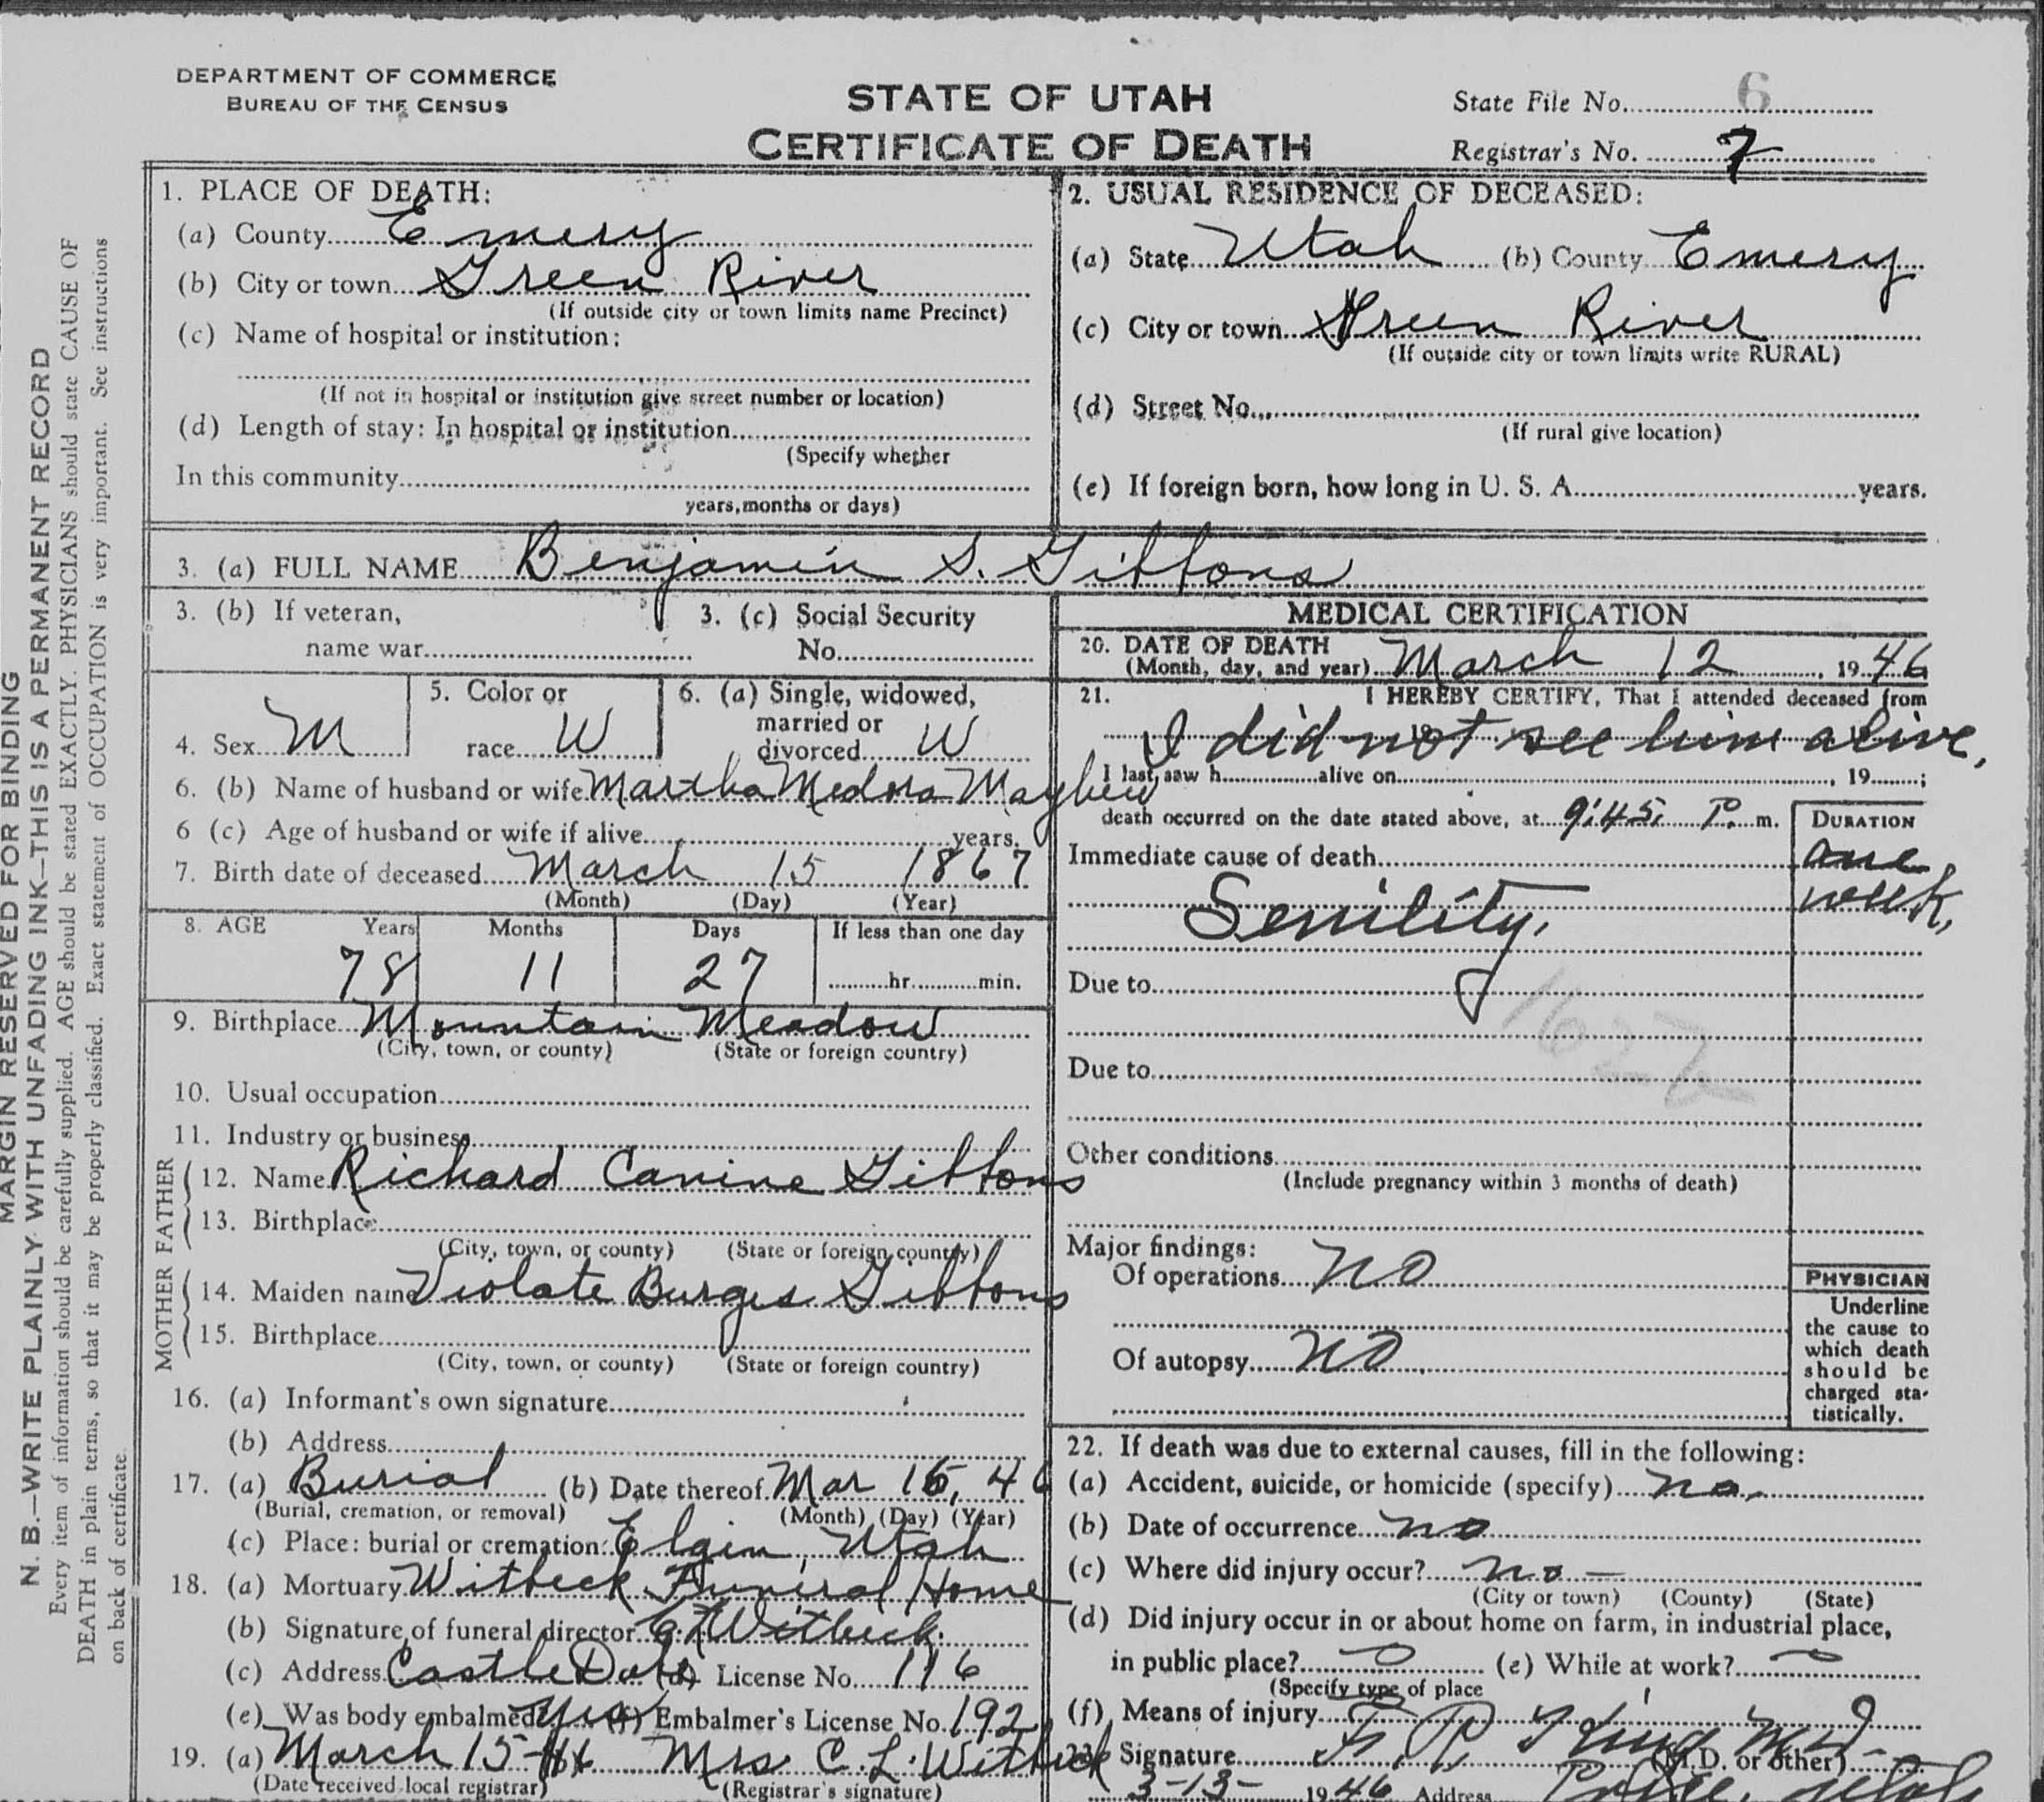 DEPARTMENT OF COMMERCE
BUREAU OF THE CENSUS
STATE OF UTAH
CERTIFICATE OF DEATH
State File No. 6
Registrar's No. 7
MARGIN RESERVED FOR BINDING
N. B.—WRITE PLAINLY WITH UNFADING INK—THIS IS A PERMANENT RECORD
Every item of information should be carefully supplied. AGE should be stated EXACTLY. PHYSICIANS should state CAUSE OF
DEATH in plain terms, so that it may be properly classified. Exact statement of OCCUPATION is very important. See instructions
on back of certificate.
1. PLACE OF DEATH:
(a) County Emery
(b) City or town Green River
(If outside city or town limits name Precinct)
(c) Name of hospital or institution:
(If not in hospital or institution give street number or location)
(d) Length of stay: In hospital or institution
(Specify whether
In this community
years, months or days)
2. USUAL RESIDENCE OF DECEASED:
(a) State Utah (b) County Emery
(c) City or town Green River
(If outside city or town limits write RURAL)
(d) Street No.
(If rural give location)
(e) If foreign born, how long in U. S. A. years.
3. (a) FULL NAME Benjamin S. Gibbons
3. (b) If veteran,
name war
3. (c) Social Security
No.
4. Sex M
5. Color or
race W
6. (a) Single, widowed,
married or
divorced W
6. (b) Name of husband or wife Martha Medora Mayhew
6 (c) Age of husband or wife if alive years.
7. Birth date of deceased March 15 1867
(Month) (Day) (Year)
8. AGE Years Months Days If less than one day
78 11 27 hr. min.
9. Birthplace Mountain Meadow
(City, town, or county) (State or foreign country)
10. Usual occupation
11. Industry or business
FATHER
12. Name Richard Canine Gibbons
13. Birthplace
(City, town, or county) (State or foreign country)
MOTHER
14. Maiden name Violate Burges Gibbons
15. Birthplace
(City, town, or county) (State or foreign country)
16. (a) Informant's own signature
(b) Address
17. (a) Burial (b) Date thereof Mar 15, 46
(Burial, cremation, or removal) (Month) (Day) (Year)
(c) Place: burial or cremation: Elgin, Utah
18. (a) Mortuary Witbeck Funeral Home
(b) Signature of funeral director Witbeck
(c) Address Castle Dale (d) License No. 116
(e) Was body embalmed Yes (f) Embalmer's License No. 192
19. (a) March 15-46 Mrs C. L. Witbeck
(Date received local registrar) (Registrar's signature)
MEDICAL CERTIFICATION
20. DATE OF DEATH
(Month, day, and year) March 12, 1946
21. I HEREBY CERTIFY, That I attended deceased from
19 I did not see him alive,
I last saw h alive on , 19 ;
death occurred on the date stated above, at 9:45 P. m.
DURATION
Immediate cause of death one
Senility, week,
Due to
1622
Due to
Other conditions
(Include pregnancy within 3 months of death)
Major findings:
Of operations no
Of autopsy no
PHYSICIAN
Underline
the cause to
which death
should be
charged sta-
tistically.
22. If death was due to external causes, fill in the following:
(a) Accident, suicide, or homicide (specify) no
(b) Date of occurrence no
(c) Where did injury occur? no –
(City or town) (County) (State)
(d) Did injury occur in or about home on farm, in industrial place,
in public place? (e) While at work?
(Specify type of place
(f) Means of injury
23. Signature (M.D. or other)
3-13- 1946 Address Price, Utah